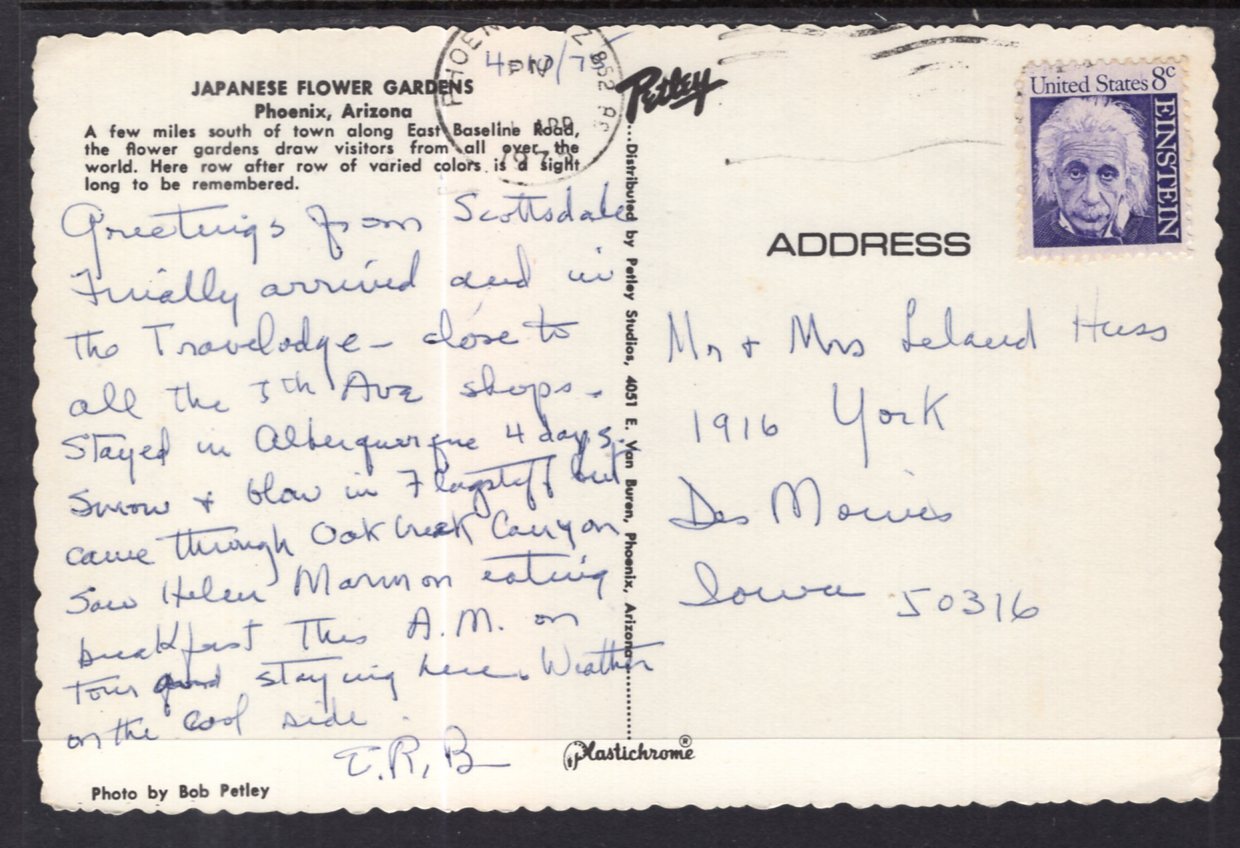 JAPANESE FLOWER GARDENS
Phoenix, Arizona
A few miles south of town along East Baseline Road,
the flower gardens draw visitors from all over the
world. Here row after row of varied colors is a sight
long to be remembered.
Greetings from Scottsdale
Finally arrived and in
the Travelodge - close to
all the 5th Ave shops.
Stayed in Alberquerque 4 days.
Snow & blow in Flagstaff but
came through Oak Creek Canyon
Saw Helen Marmon eating
breakfast this A.M. on
tour and staying here. Weather
on the cool side.
E.R.B
Photo by Bob Petley
PHOEN
PM
APR
197
Petley
Distributed by Petley Studios, 4051 E. Van Buren, Phoenix, Arizona
Plastichrome®
United States 8c
EINSTEIN
ADDRESS
Mr & Mrs Leland Huss
1916 York
Des Moines
Iowa 50316